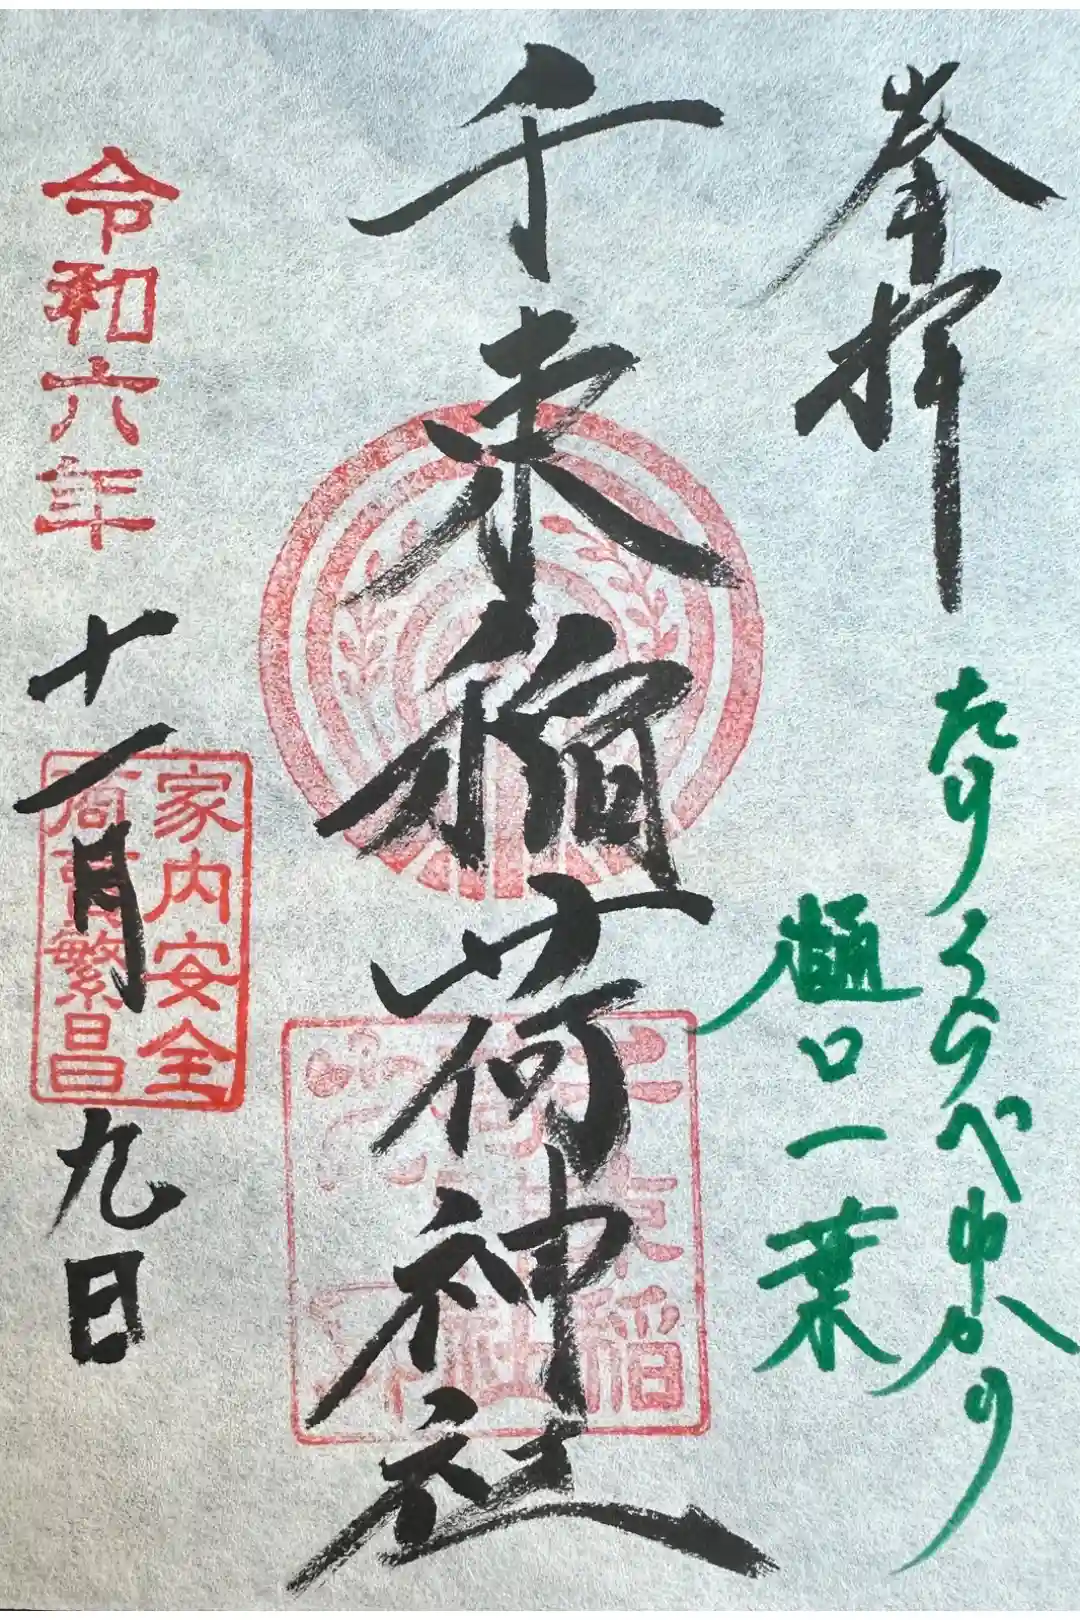 奉拝
たけくらべゆかり
樋口一葉
千束稲荷神社
千束稲
荷神社
令和六年十一月九日
家内安全
商賣繁昌